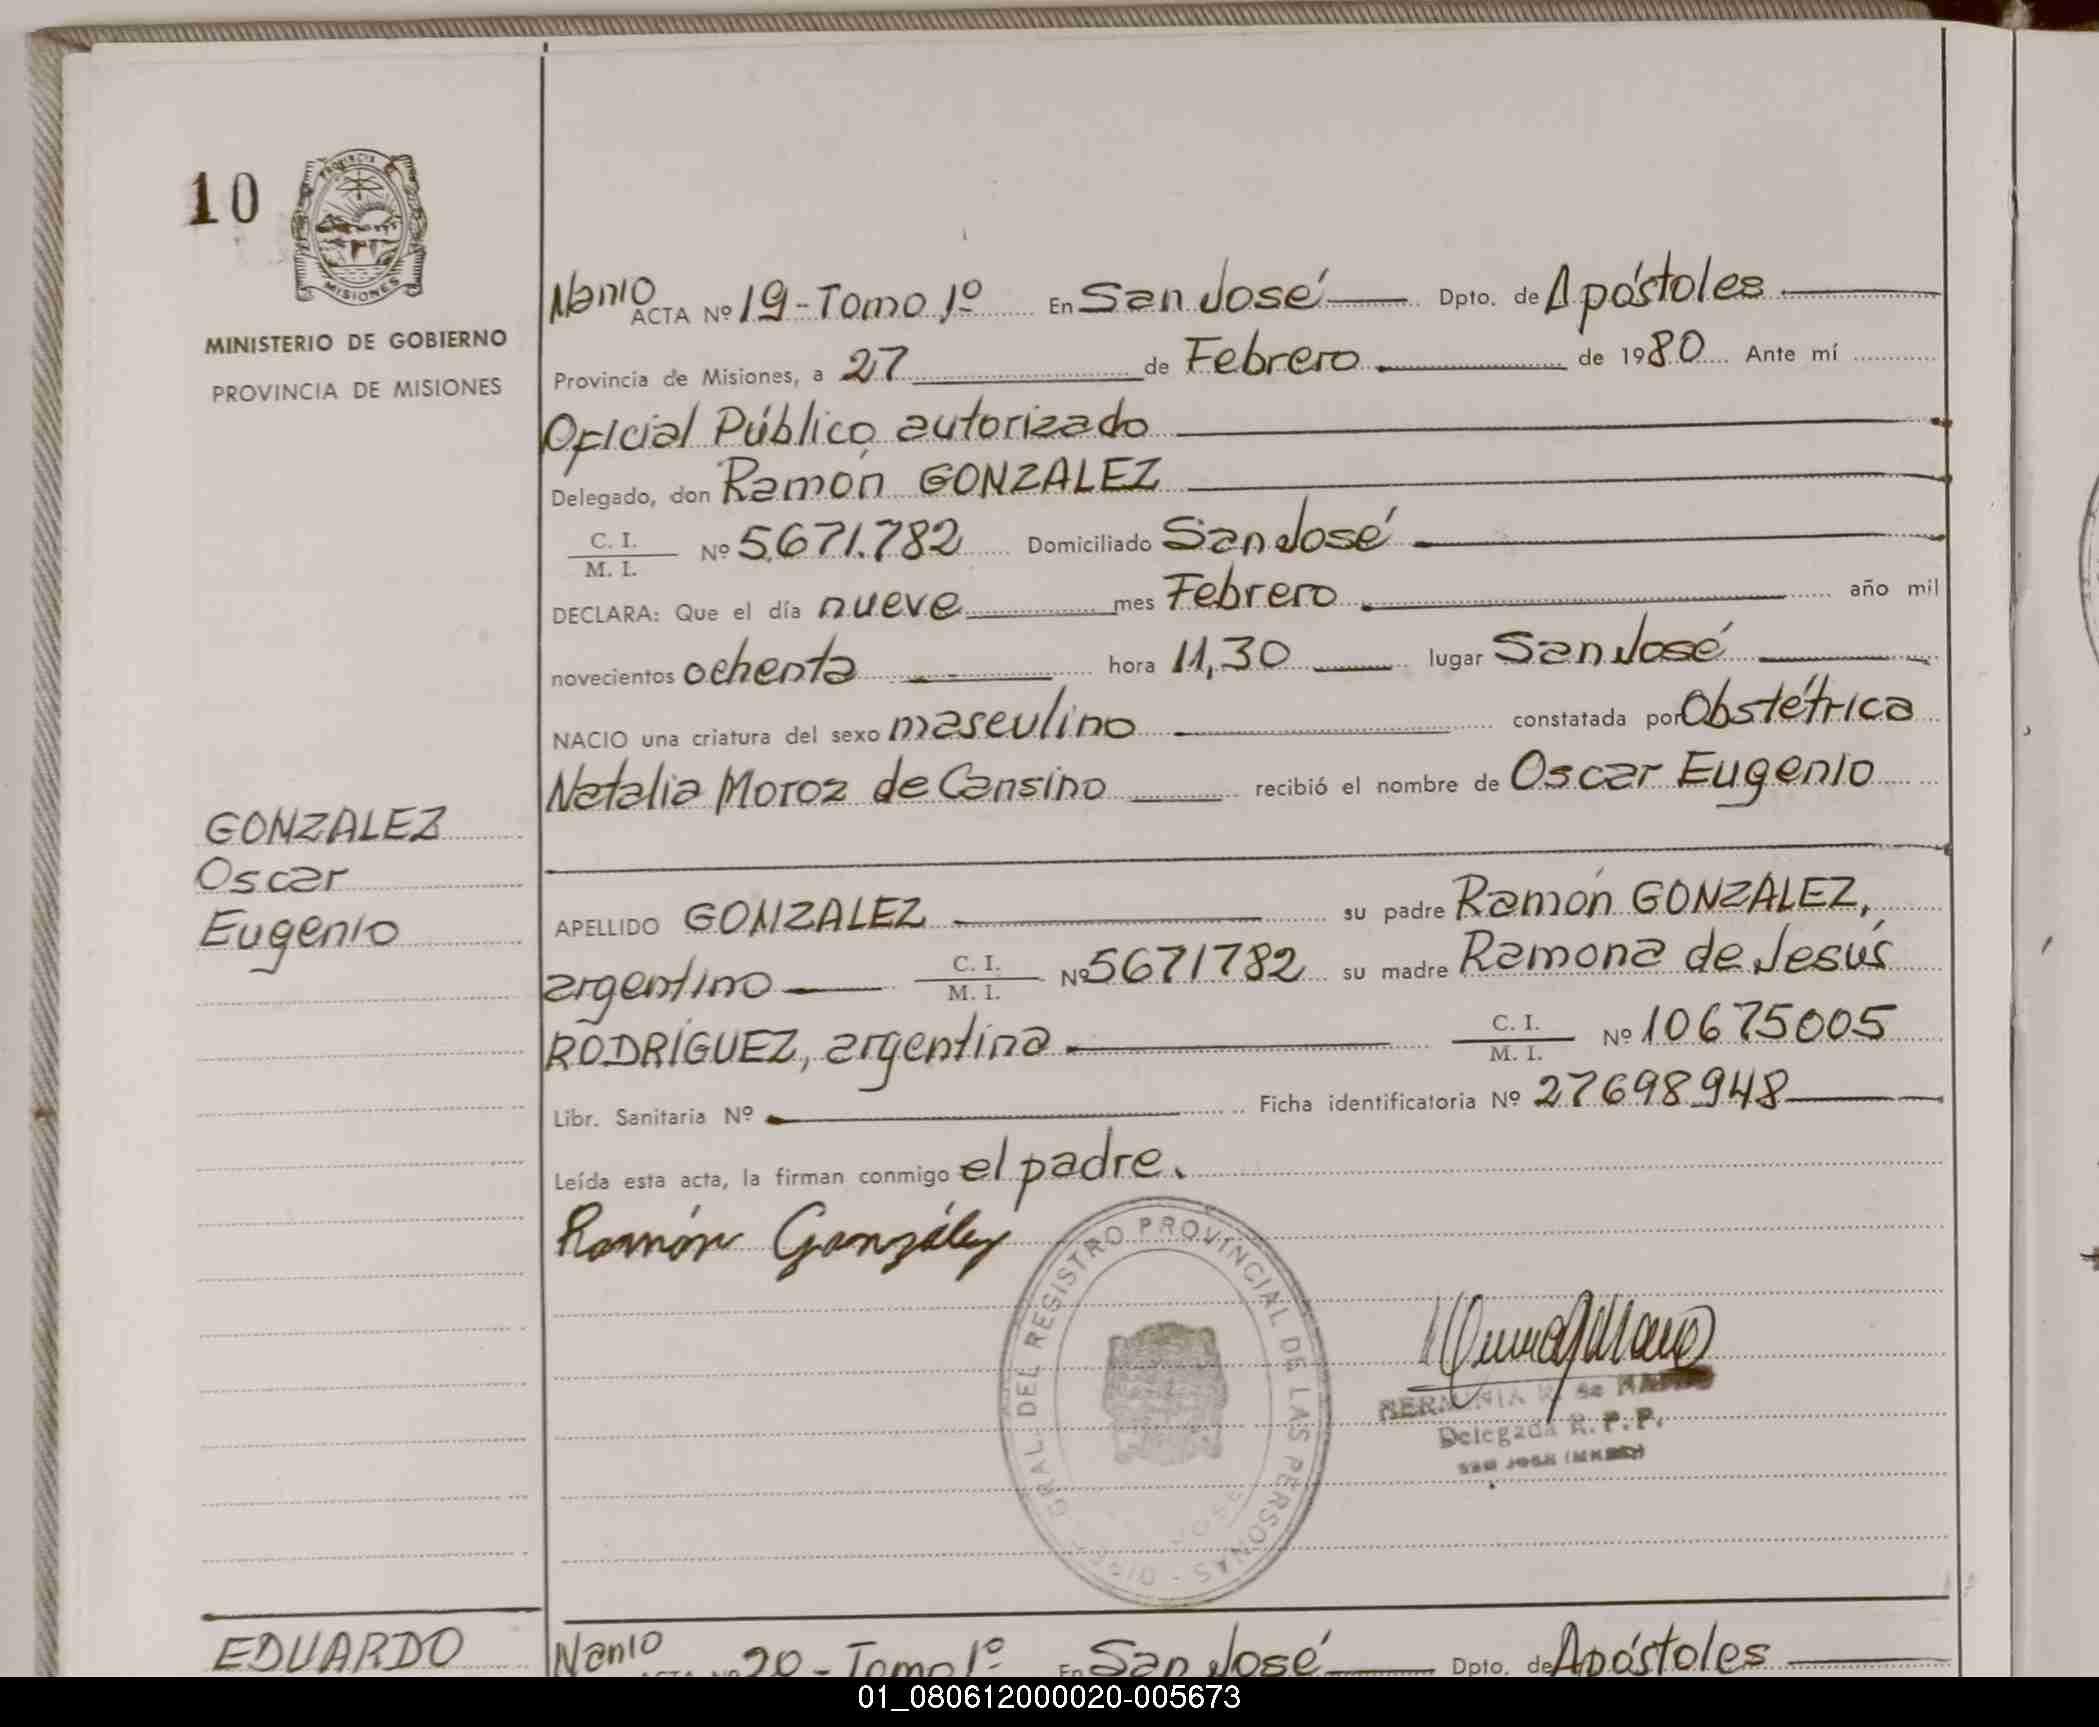 10
PROVINCIA
MISIONES
MINISTERIO DE GOBIERNO
PROVINCIA DE MISIONES
GONZALEZ
Oscar
Eugenio
ACTA Nº 19 - Tomo 1º En San José Dpto. de Apóstoles
Provincia de Misiones, a 27 de Febrero de 1980 Ante mí
Oficial Público autorizado
Delegado, don Ramón GONZALEZ
C. I.
M. I. Nº 5.671.782 Domiciliado San José
DECLARA: Que el día nueve mes Febrero año mil
novecientos ochenta hora 11,30 lugar San José
NACIO una criatura del sexo masculino constatada por Obstétrica
Natalia Moroz de Cansino recibió el nombre de Oscar Eugenio
APELLIDO GONZALEZ su padre Ramón GONZALEZ,
argentino C. I. M. I. Nº 5671782 su madre Ramona de Jesús
RODRÍGUEZ, argentina C. I. M. I. Nº 10675005
Libr. Sanitaria Nº Ficha identificatoria Nº 27698948
Leída esta acta, la firman conmigo el padre.
Ramón González
GRAL. DEL REGISTRO PROVINCIAL DE LAS PERSONAS
HERMINIA
Delegada R. P. P.
SAN JOSE
EDUARDO
20 - Tomo 1º En San José Dpto. de Apóstoles
01_080612000020-005673